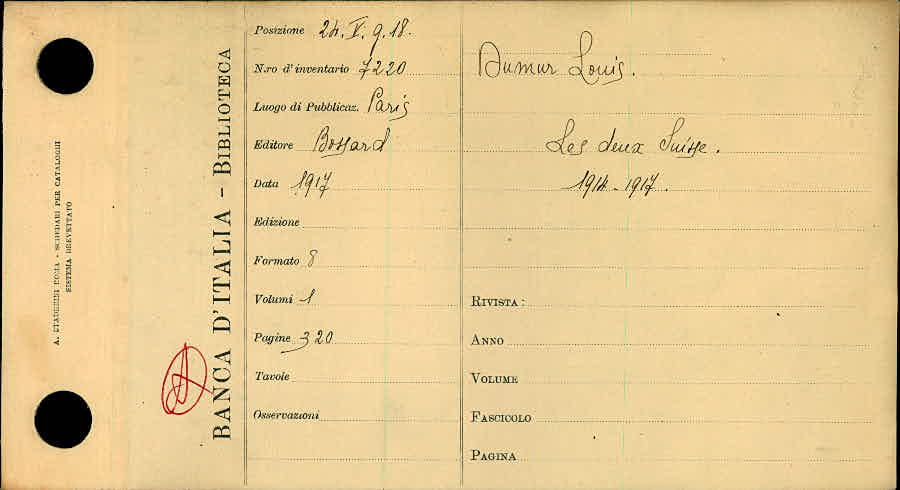 A. STADERINI ROMA - SCHEDARI PER CATALOGHI
SISTEMA BREVETTATO
BANCA D'ITALIA - BIBLIOTECA
Posizione 24. V. 9. 18.
N.ro d'inventario 7220
Luogo di Pubblicaz. Paris
Editore Bossard
Data 1917
Edizione
Formato 8
Volumi 1
Pagine 320
Tavole
Osservazioni
Dumur Louis.
Les deux Suisse.
1914-1917.
RIVISTA:
ANNO
VOLUME
FASCICOLO
PAGINA